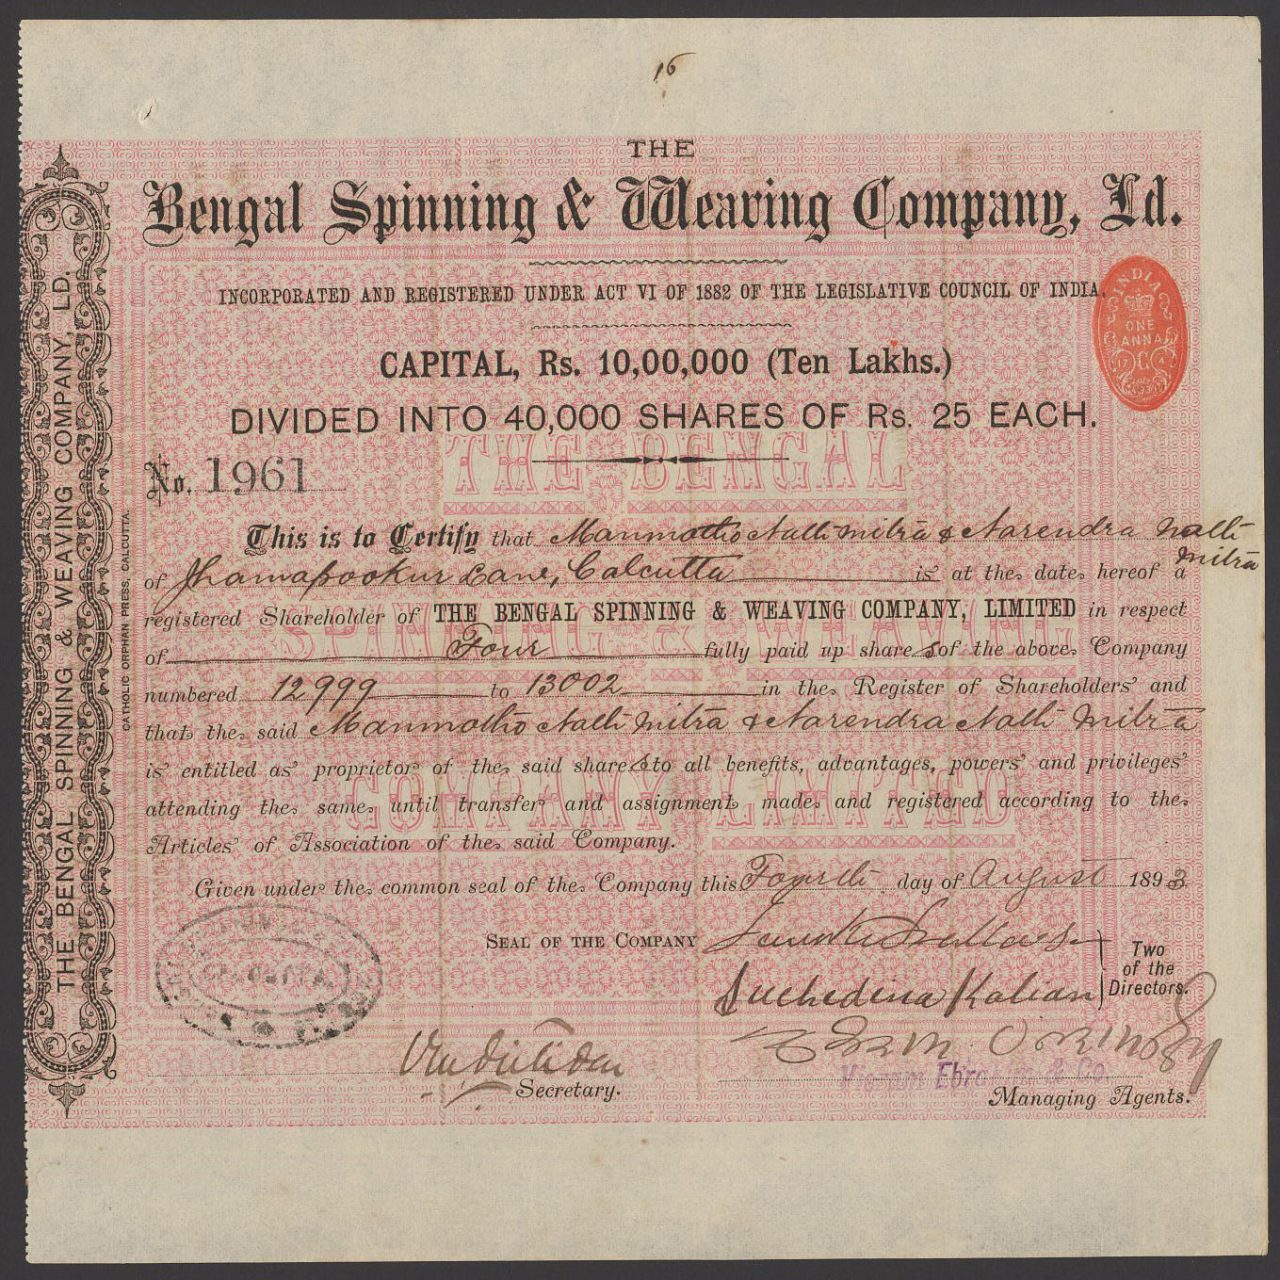 16
THE
Bengal Spinning & Weaving Company, Ld.
INCORPORATED AND REGISTERED UNDER ACT VI OF 1882 OF THE LEGISLATIVE COUNCIL OF INDIA.
INDIA
ONE
ANNA
CAPITAL, Rs. 10,00,000 (Ten Lakhs.)
DIVIDED INTO 40,000 SHARES OF Rs. 25 EACH.
THE BENGAL
No. 1961
This is to Certify that Manmotho Nath Mitra & Narendra Nath
Mitra
of Jhamapookur Lane, Calcutta is at the date hereof a
registered Shareholder of THE BENGAL SPINNING & WEAVING COMPANY, LIMITED in respect
SPINNING & WEAVING
of Four fully paid up shares of the above Company
numbered 12999 to 13002 in the Register of Shareholders and
that the said Manmotho Nath Mitra & Narendra Nath Mitra
is entitled as proprietor of the said shares to all benefits, advantages, powers and privileges
attending the same until transfer and assignment made and registered according to the
COMPANY LIMITED
Articles of Association of the said Company.
Given under the common seal of the Company this Fourth day of August 1893
SEAL OF THE COMPANY
Suchedina Kalian
Two
of the
Directors.
Secretary.
Ebrahim & Co.
Managing Agents.
THE BENGAL SPINNING & WEAVING COMPANY, LD.
CATHOLIC ORPHAN PRESS, CALCUTTA.